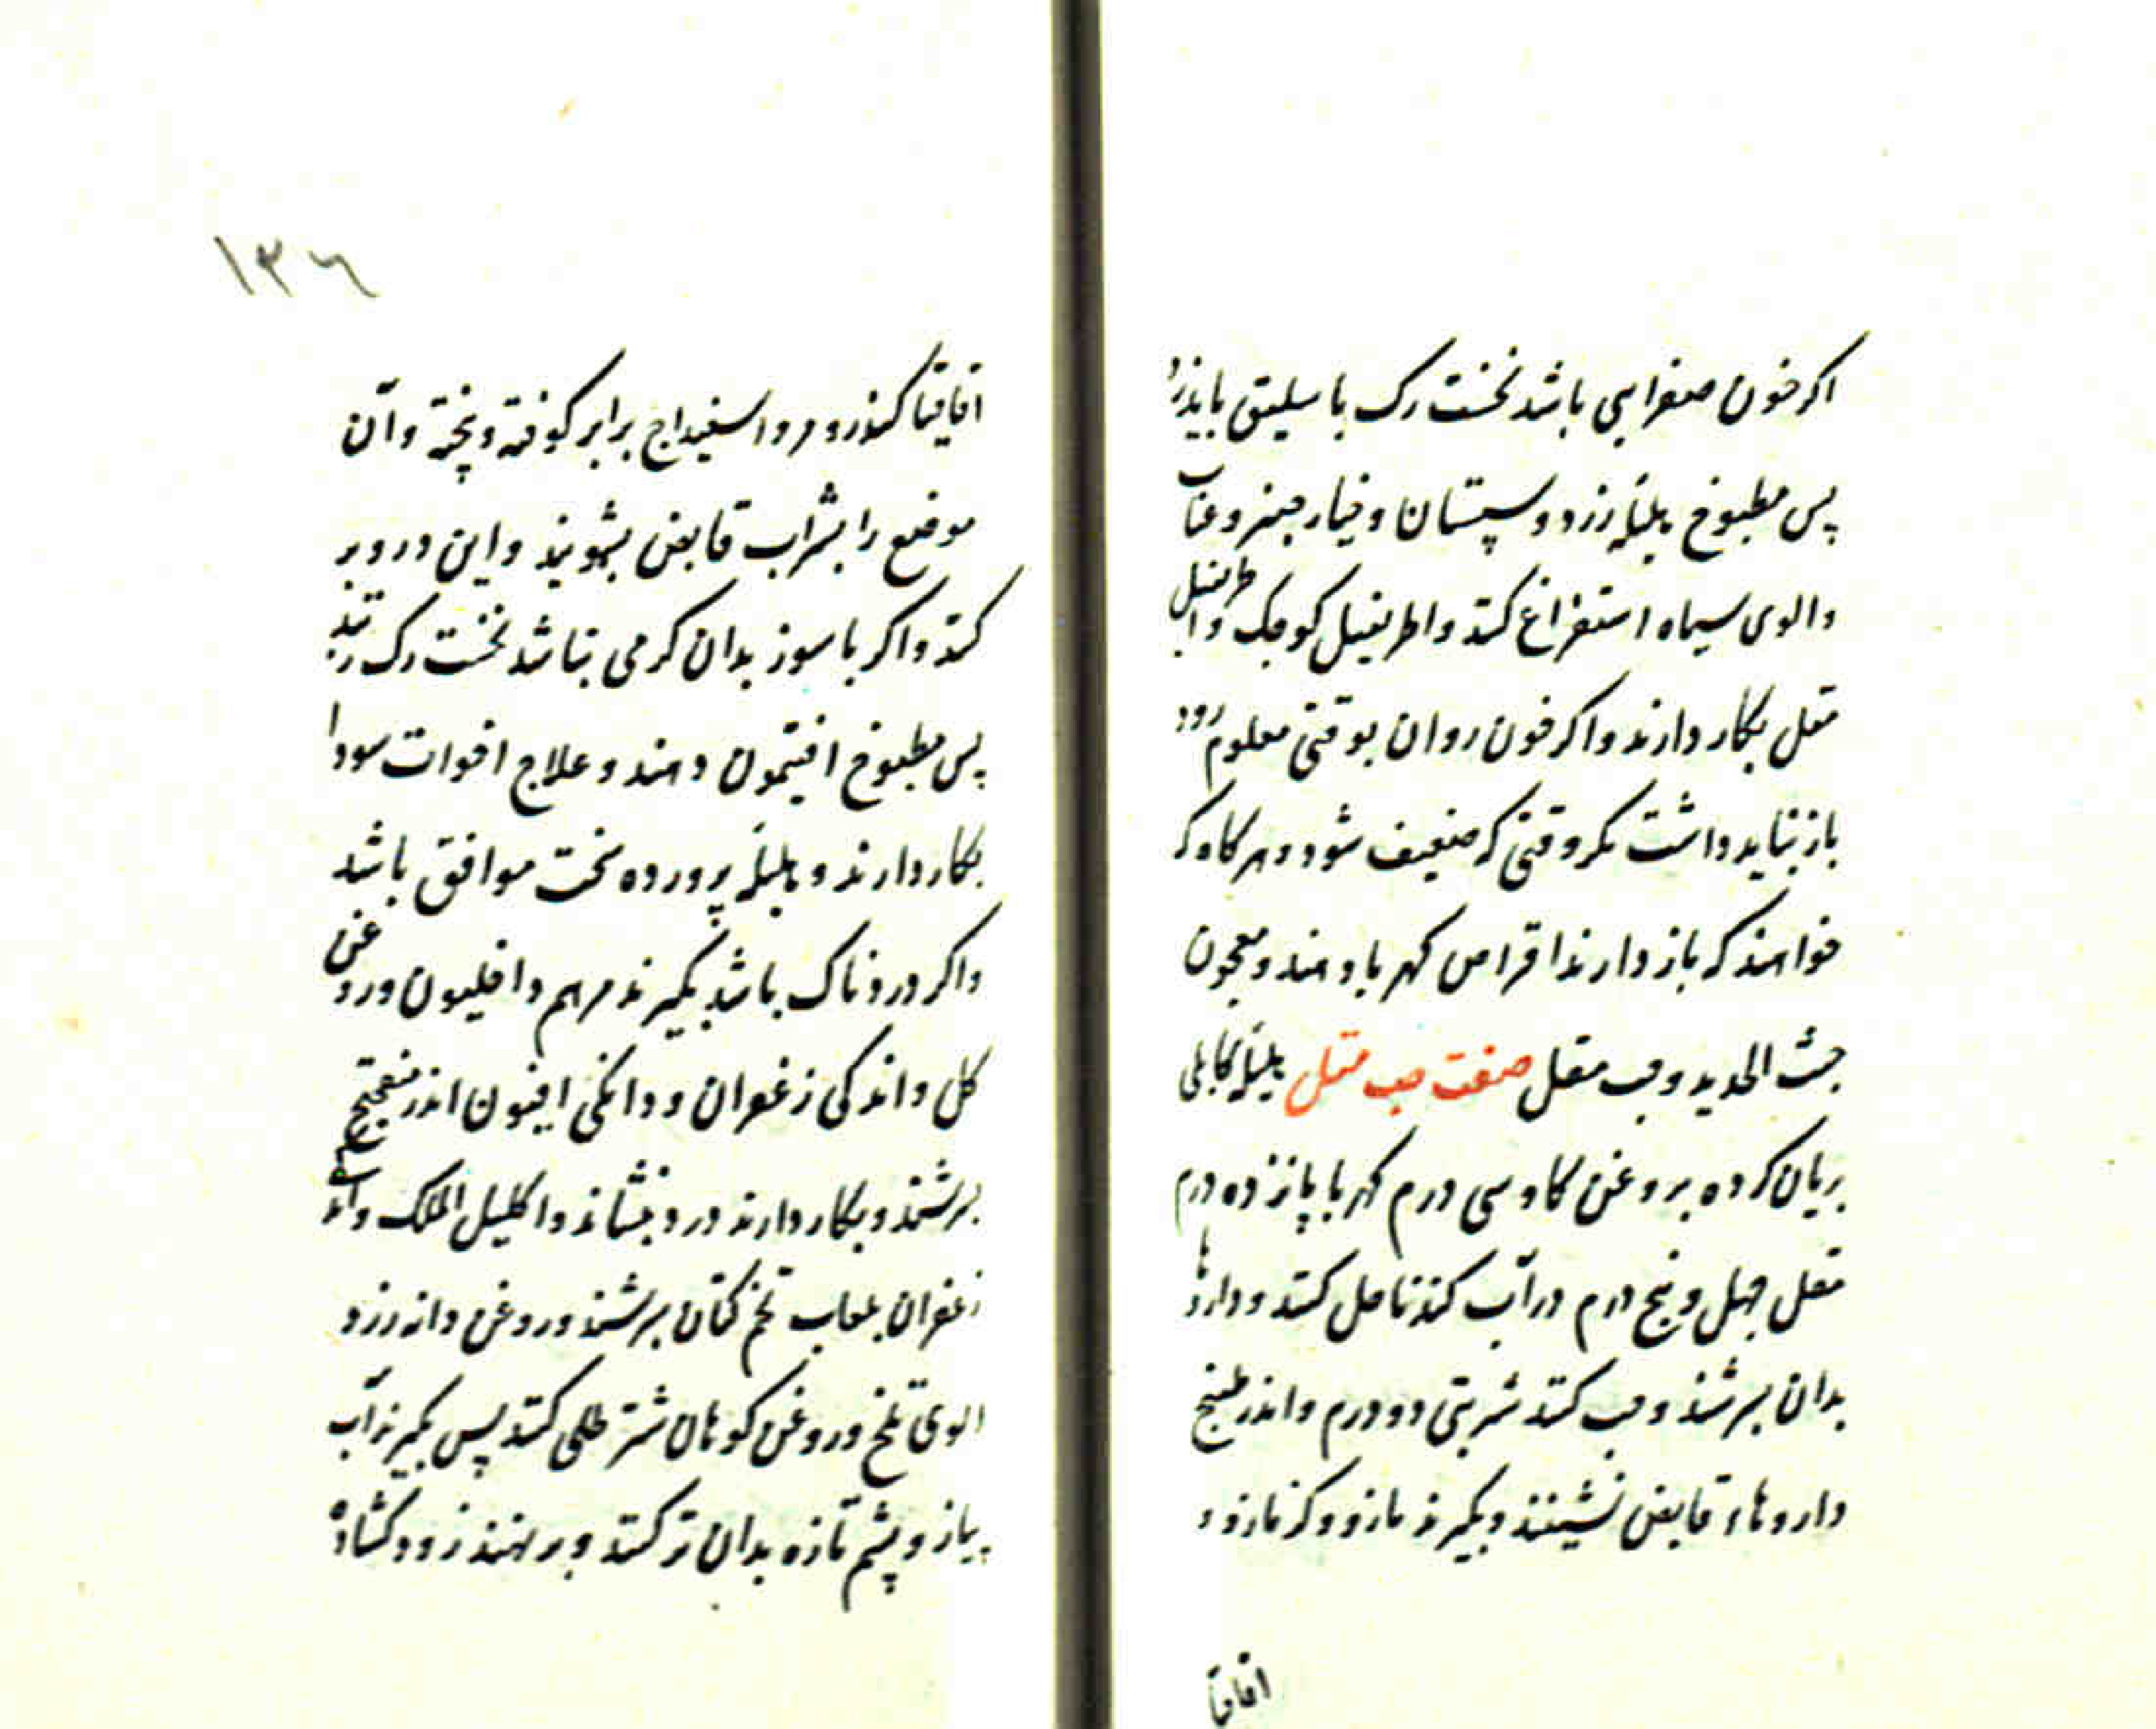 اکر خون صفرایی باشد نخست رک باسلیق باید زد
پس مطبوخ هلیله زرد و سپستان و خیار چنبر و عناب
و الوی سیاه استفراغ کنند و اطریفل کوچک و اطریفل
مقل بکار دارند و اکر خون روان بوقتی معلوم رود
باز نباید داشت مکر وقتی که ضعیف شود و هرکاه که
خواهند که باز دارند اقراص کهربا دهند و معجون
خبث الحدید و حب مقل صفت حب مقل هلیله کابلی
بریان کرده بروغن کاو سی درم کهربا پانزده درم
مقل چهل و پنج درم در آب کندنا حل کنند و داروها
بدان بسرشند و حب کنند شربتی دو درم و اندر طبیخ
داروهاء قابض نشینند و بکیرند مازو و کزمازو و
اقاقیا
۱۳۶
اقاقیا کندر و مر و اسفیداج برابر کوفته و پخته و آن
موضع را بشراب قابض بشویند و این درو بر
کنند و اکر با سوز بدان کرمی نباشد نخست رک زنند
پس مطبوخ افتیمون دهند و علاج اخوات سودا
بکار دارند و هلیله پرورده سخت موافق باشد
و اکر دردناک باشد بکیرند مرهم داخلیون و روغن
کل و اندکی زعفران و دانکی افیون اندر میفختج
بسرشند و بکار دارند درد بنشاند و اکلیل الملک و
زعفران بلعاب تخم کتان بسرشند و روغن دانه زرد
الوی تلخ و روغن کوهان شتر طلی کنند پس بکیرند آب
پیاز و پشم تازه بدان تر کنند و بر نهند زود کشاده